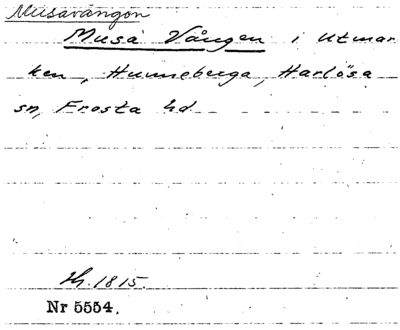 Musavången
Musa Vången i Utmar
ken, Hunneberga, Harlösa
sn, Frosta hd
Hs. 1815.
Nr 5554.